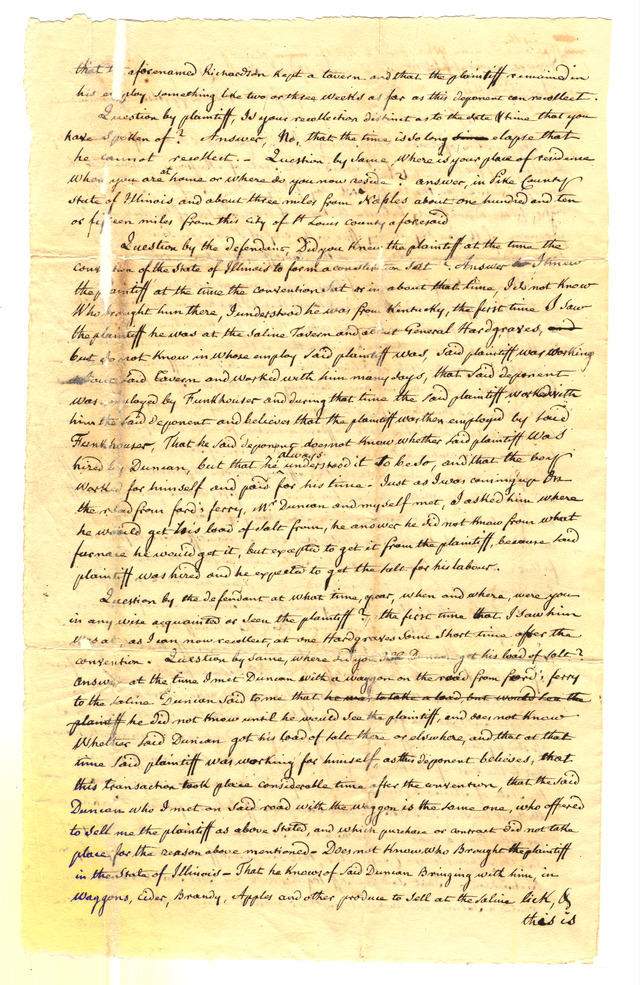 that the aforenamed Richardson kept a tavern and that the plaintiff remained in
his employ something like two or three weeks as far as this deponent can recollect.
Question by plaintiff, Is your recollection distinct as to the date & time that you
have spoken of? Answer, No, that the time is so long since elapse that
he cannot recollect. – Question by Same where is your place of residence
when you are at home or where do you now reside? answer, in Pike County
State of Illinois and about three miles from Naples about one hundred and ten
or fifteen miles from this City of St Louis County aforesaid
Question by the defendant, Did you know the plaintiff at the time the
convention of the State of Illinois to form a constitution Sat? Answer I knew
the plaintiff at the time the convention Sat or in about that time, I do not know
Who brought him there, I understood he was from Kentucky, the first time I saw
the plaintiff he was at the Saline Tavern and about General Hardgraves, and
but do not know in whose employ said plaintiff was, said plaintiff was working
about said Tavern and worked with him many days, that said deponent
was employed by Funkhouser and during that time the said plaintiff worked with
him the said deponent and believes that the plaintiff was then employed by said
Funkhouser, That he said deponent does not know whether said plaintiff was
hired by Duncan, but that he always understood it to be so, and that the boy
worked for himself and paid for his time – Just as I was coming up on
the road from ford's ferry, Mr Duncan and myself met, I asked him where
he would get his load of Salt from, he answer he did not know from what
furnace he would get it, but expected to get it from the plaintiff, because said
plaintiff was hired and he expected to get the Salt for his labour.
Question by the defendant at what time, year, when and where, were you
in any wise acquainted or seen the plaintiff? the first time that I saw him
was at, as I can now recollect, at one Hardgraves Some Short time after the
convention. Question by Same, where did you Duncan got his load of Salt?
answer at the time I met Duncan with a waggon on the road from ford's ferry
to the Saline Duncan Said to me that he was to take a load, but would see the
plaintiff he did not know until he would See the plaintiff, and does not know
Whether said Duncan got his load of Salt there or elsewhere, and that at that
time Said plaintiff was working for himself, as this deponent believes, that
this transaction took place considerable time after the convention, that the said
Duncan who I met on Said road with the waggon is the same one, who offered
to sell me the plaintiff as above Stated, and which purchase or contract did not take
place for the reason above mentioned – Does not Know who Brought the plaintiff
in the State of Illinois – That he knows of Said Duncan Bringing with him, in
Waggons, Cider, Brandy, Apples and other produce to Sell at the Saline lick, &
this is